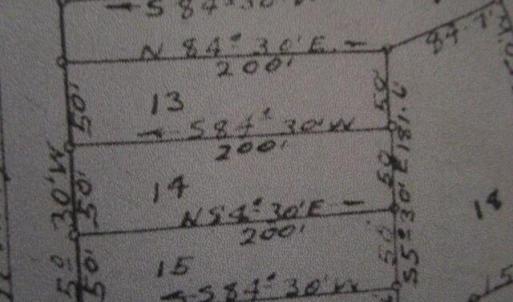 S 84° 30' W
N 84° 30' E
200'
84.13
50'
13
50'
S 84° 30' W
200'
50'
14
50'
N 84° 30' E
200'
18
15
50'
50'
S 84° 30' W
5° 30' W
S 5° 30' E 181.6'
15